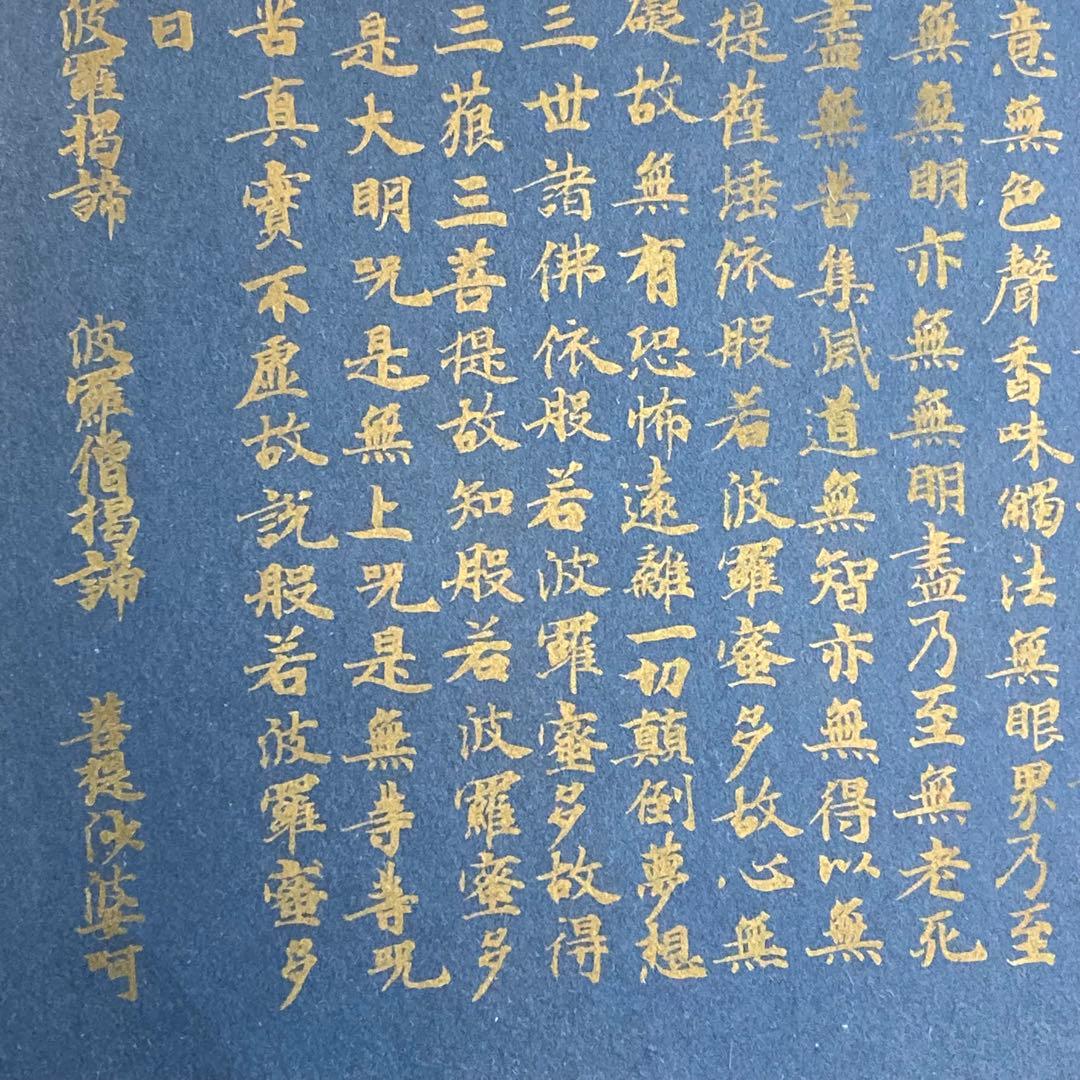 意無色聲香味觸法無眼界乃至
無無明亦無無明盡乃至無老死
盡無苦集滅道無智亦無得以無
提薩埵依般若波羅蜜多故心無
礙故無有恐怖遠離一切顛倒夢想
三世諸佛依般若波羅蜜多故得
三藐三菩提故知般若波羅蜜多
是大明咒是無上咒是無等等咒
苦真實不虛故説般若波羅蜜多
曰
波羅揭諦 波羅僧揭諦 菩提沙婆呵